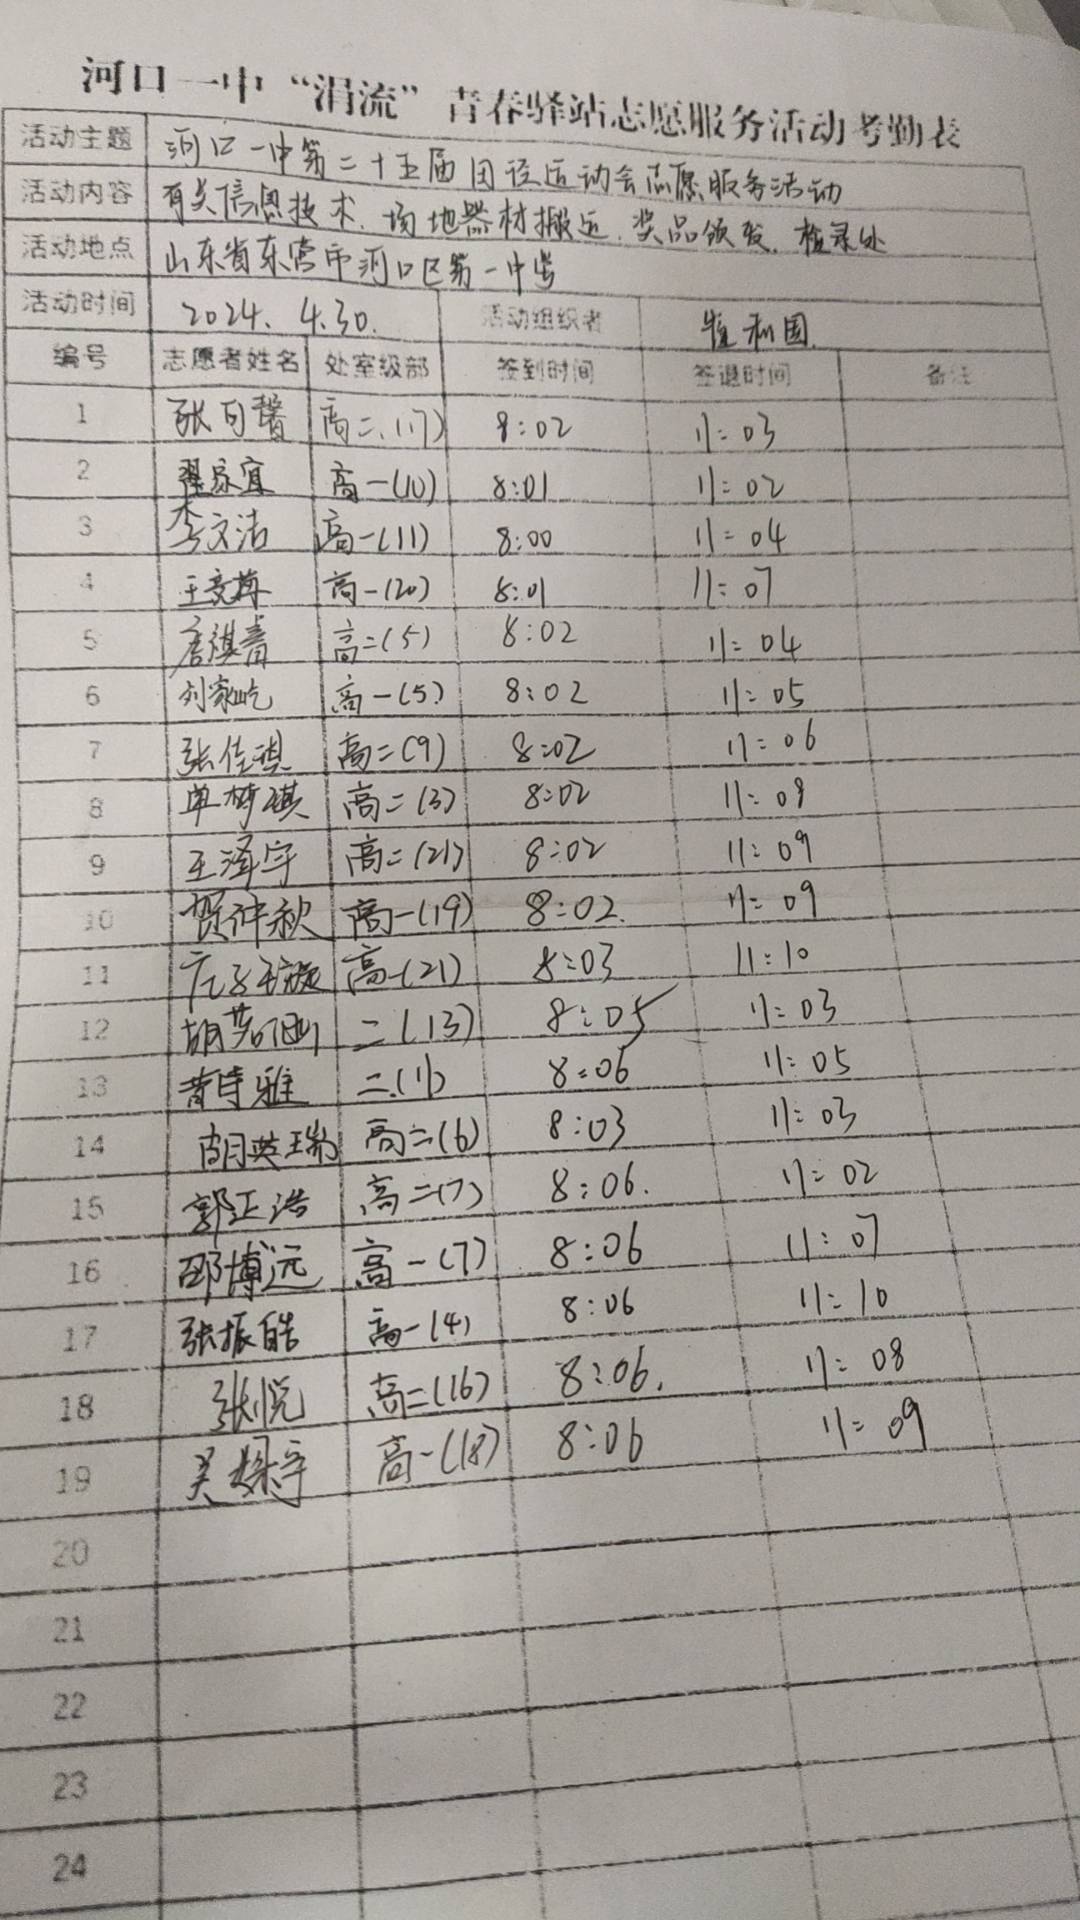 河口一中“涓流”青春驿站志愿服务活动考勤表
活动主题 河口一中第二十五届田径运动会志愿服务活动
活动内容 有关信息技术、场地器材搬运、奖品领发、检录处
活动地点 山东省东营市河口区第一中学
活动时间 2024. 4.30. 活动组织者 和国
编号 志愿者姓名 处室级部 签到时间 签退时间 备注
1 张 馨 高二(17) 8:02 11:03
2 翟家宜 高一(10) 8:01 11:02
3 李文洁 高一(11) 8:00 11:04
4 王 高一(20) 8:01 11:07
5 唐祺青 高二(5) 8:02 11:04
6 刘家屹 高一(5) 8:02 11:05
7 张佳琪 高二(9) 8:02 11:06
8 单梓祺 高二(3) 8:02 11:08
9 王泽宇 高二(21) 8:02 11:09
10 贺仲秋 高一(19) 8:02. 11:09
11 高一(21) 8:03 11:10
12 胡 二(13) 8:05 11:03
13 诗雅 二(1) 8:06 11:05
14 胡英瑞 高二(6) 8:03 11:03
15 郭正浩 高二(7) 8:06. 11:02
16 邵博远 高一(7) 8:06 11:07
17 张振皓 高一(4) 8:06 11:10
18 张悦 高二(16) 8:06. 11:08
19 吴 宇 高一(18) 8:06 11:09
20
21
22
23
24